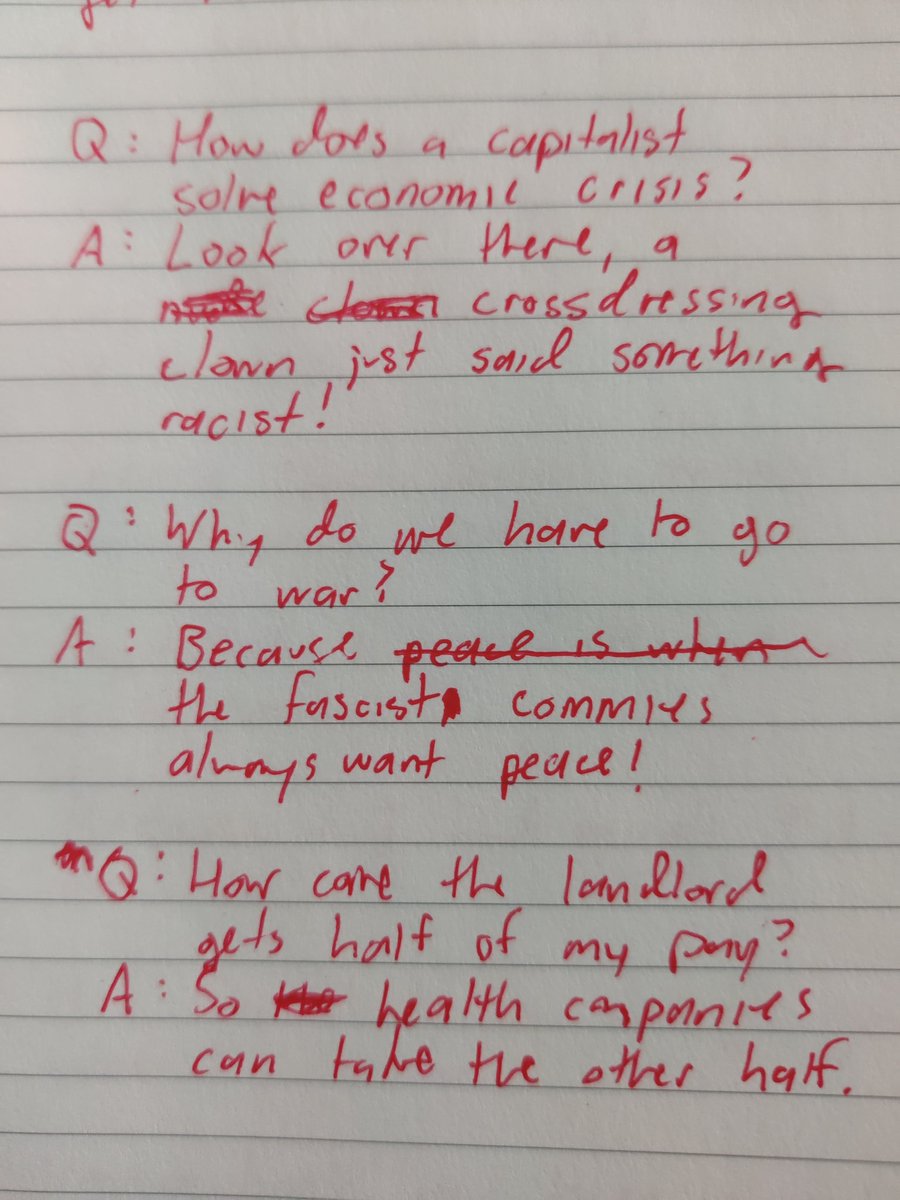 Q: How does a capitalist
solve economic crisis?
A: Look over there, a
crossdressing
clown just said something
racist!
Q: Why do we have to go
to war?
A: Because peace is when
the fascist commies
always want peace!
Q: How come the landlord
gets half of my pony?
A: So health companies
can take the other half.